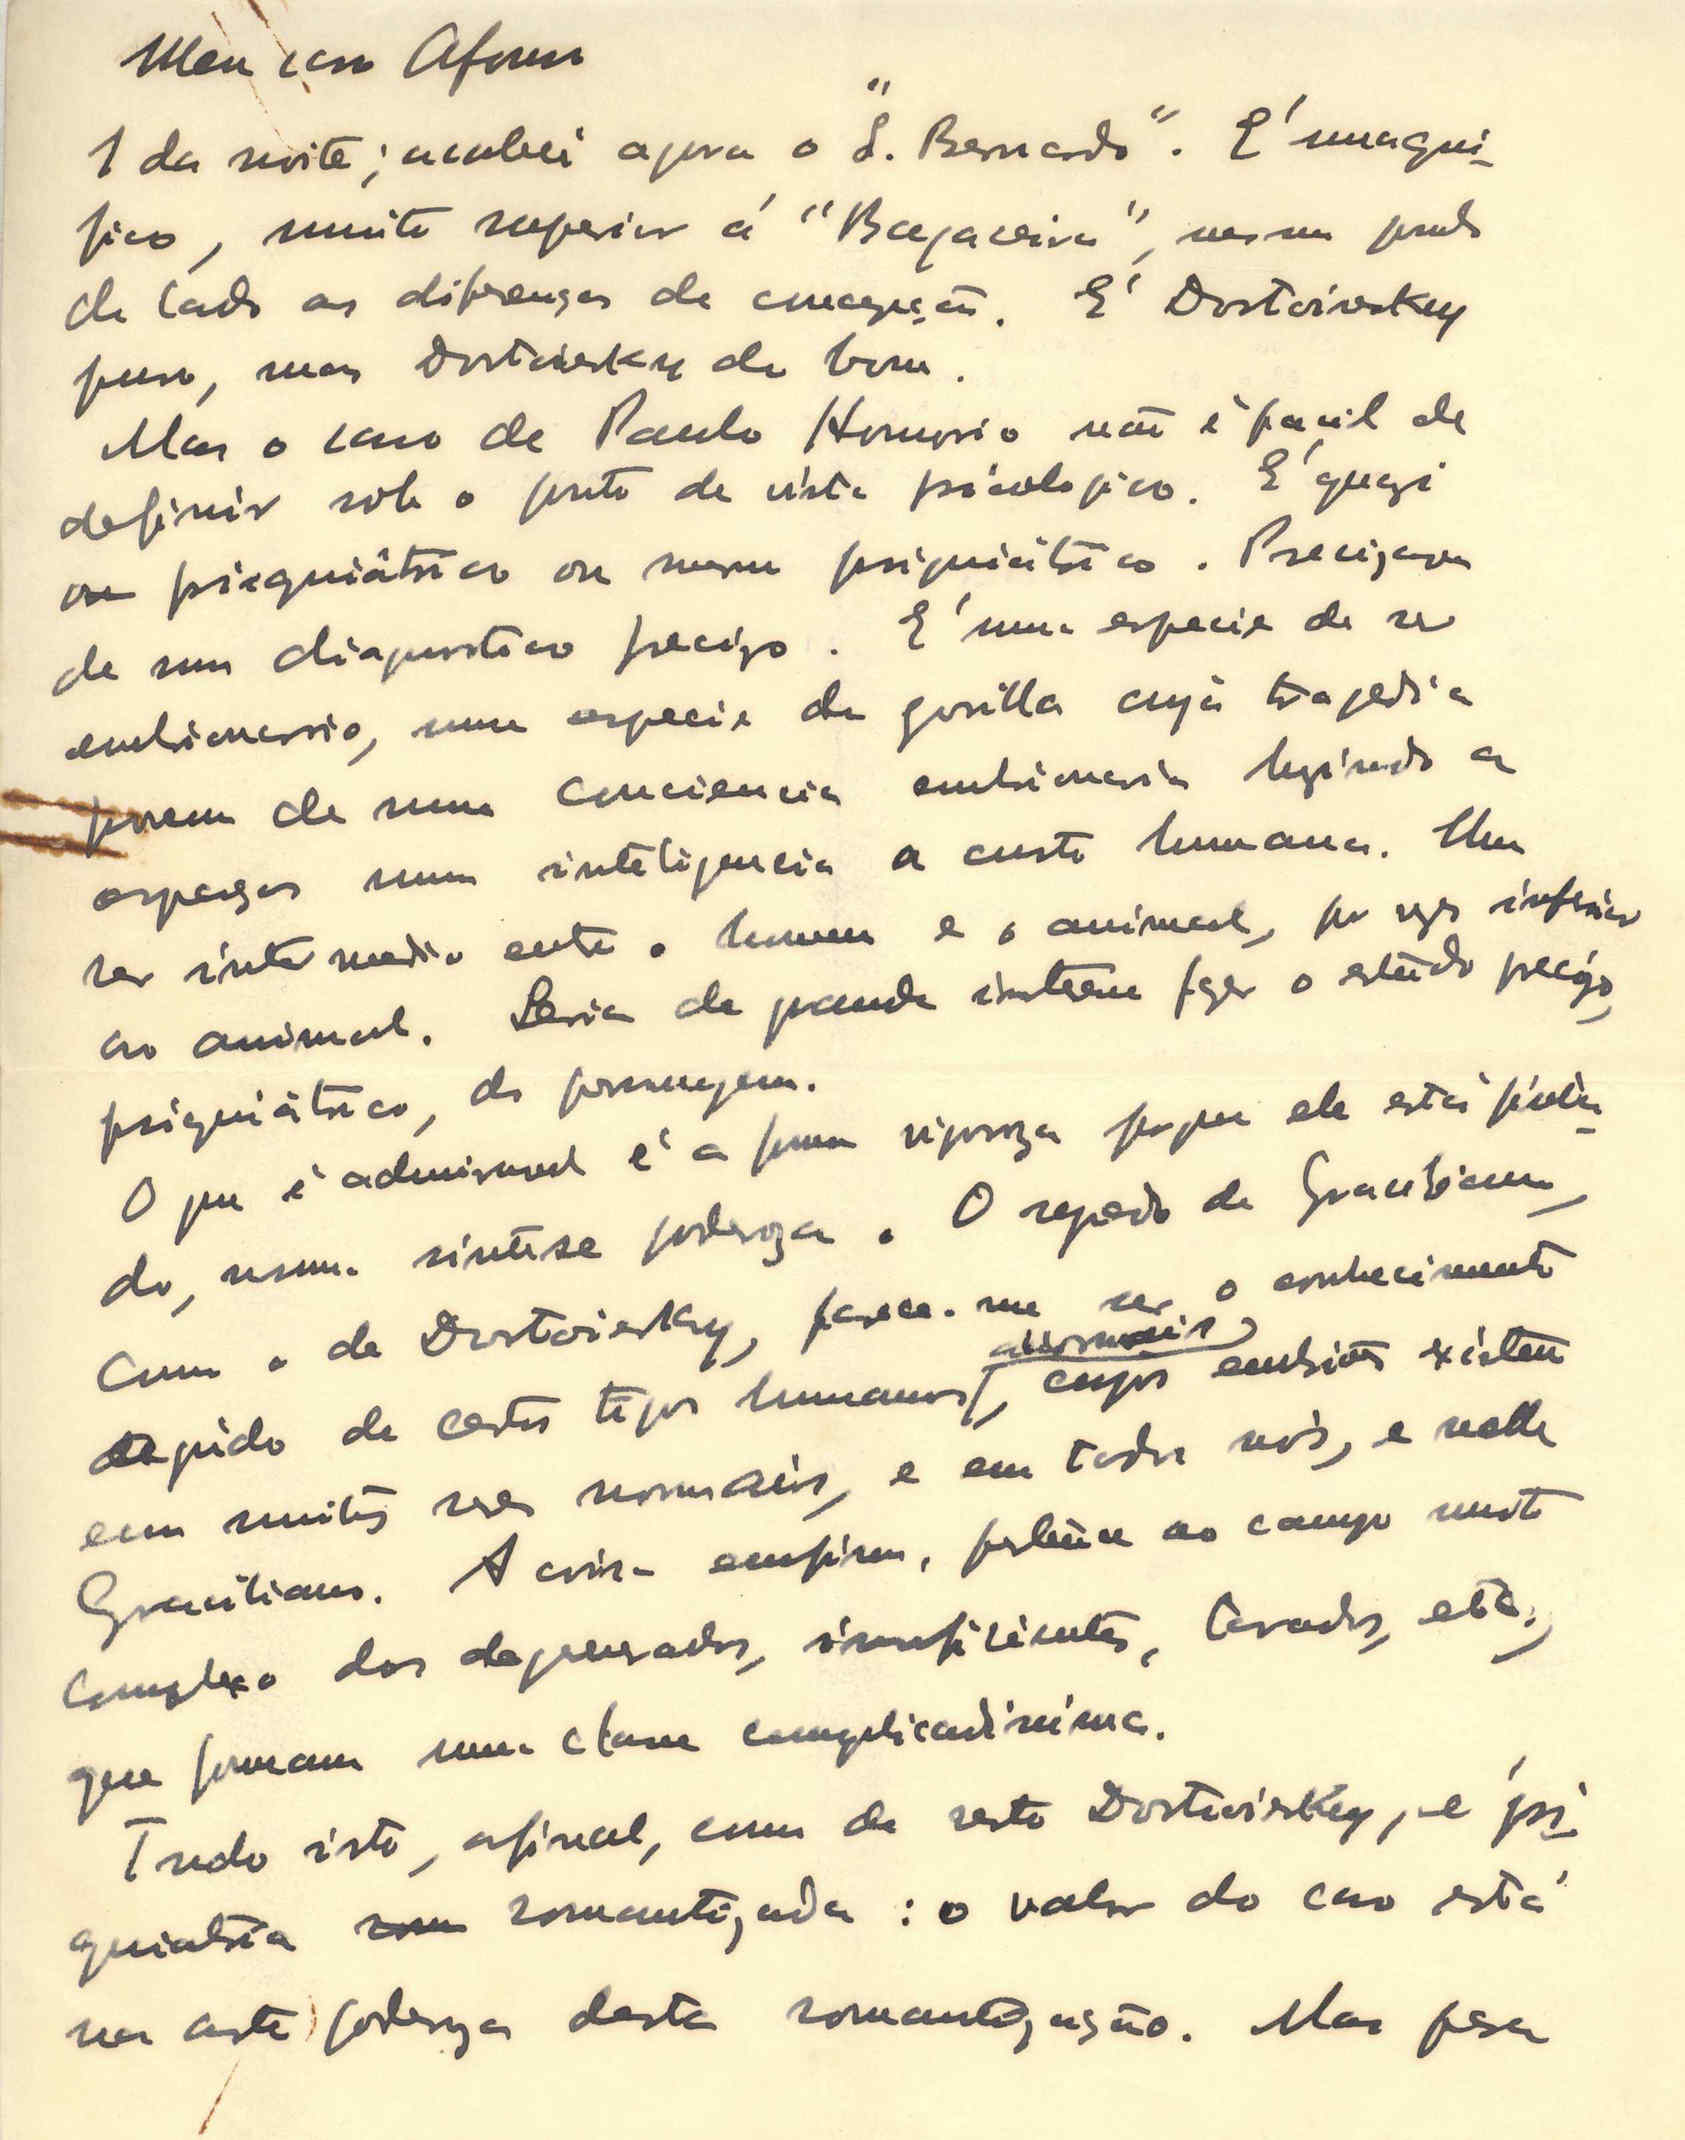 Meu caro Afonso
1 da noite; acabei agora o "S. Bernardo". E' magni-
fico, muito superior á "Bagaceira", mesmo pondo
de lado as diferenças de concepção. E' Dostoiewsky
puro, mas Dostoiewsky do bom.
Mas o caso de Paulo Honorio não é facil de
definir sob o ponto de vista psicologico. E' quazi
ou psiquiátrico ou mesmo psiquiátrico. Precizava
de um diagnostico precizo. E' uma especie de ser
embrionario, uma especie de gorilla cuja tragedia
provem de uma conciencia embrionaria tingindo a
espaços uma inteligencia a custo humana. Um
ser intermedio entre o homem e o animal, por vezes inferior
ao animal. Seria de grande interesse fazer o estudo precizo,
psiquiátrico, do personagem.
O que é admiravel é a forma vigoroza porque ele está pinta-
do, numa sintese poderoza. O segredo de Graciliano,
como o de Dostoiewsky, parece-me ser o conhecimento
agudo de certos tipos humanos anormais, cujos embriões existem
em muitos seres normais, e em todos nós, e nelle
Graciliano. A coisa emfim, pertence ao campo muito
complexo dos degenerados, insuficientes, tarados, etc.,
que formam uma classe complicadissima.
Tudo isto, afinal, como de resto Dostoiewsky, é psi-
quiatria romantizada: o valor do caso está
na arte poderoza desta romantização. Mas para